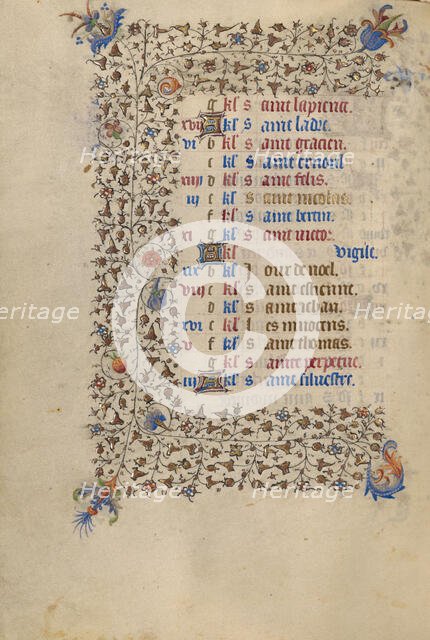 g kl S ainte sapience.
xvij A kl S aint ladre.
vi b kl S aint gracien.
c kl S aint
xiiij d kl S aint felis.
iij e kl S aint nicolas.
f kl S aint bertin.
xi g kl S aint victor.
A kl Vigile.
xix b kl J our de noel.
viij c kl S aint estienne.
d kl S aint iehan.
xvi e kl L es innocens.
v f kl S aint thomas.
g kl S ainte perpetue.
A kl S aint siluestre.
Heritage
Heritage
Heritage
Heritage
Heritage
Heritage
©